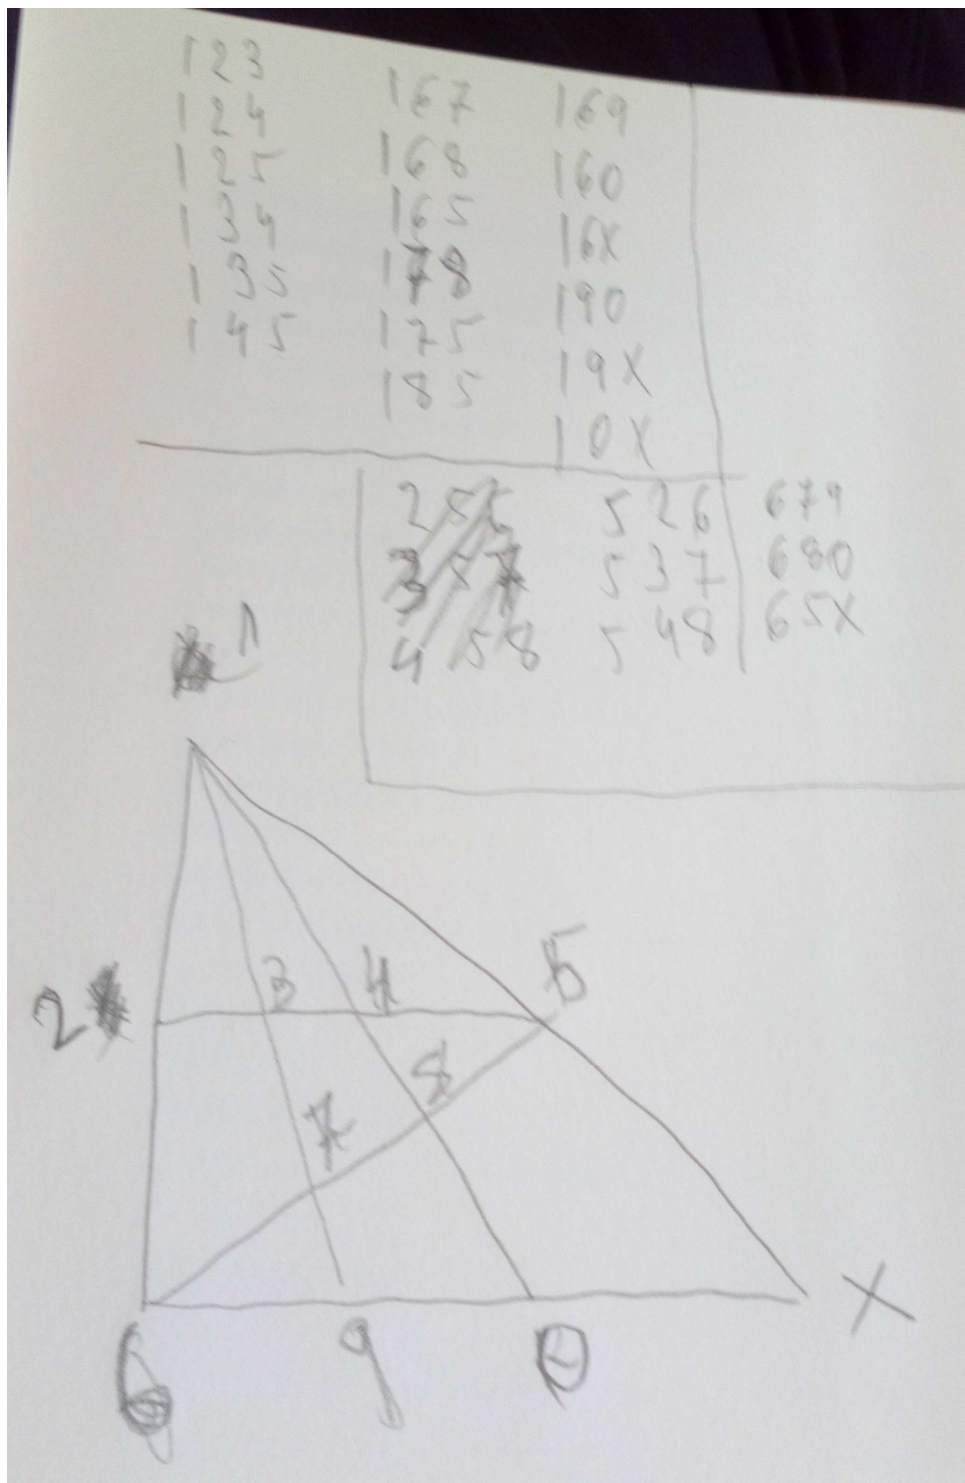 123
124
125
134
135
145
167
168
165
178
175
185
169
160
16X
190
19X
10X
256
357
458
526
537
548
679
680
65X
1
2
3
4
5
7
8
6
9
0
X